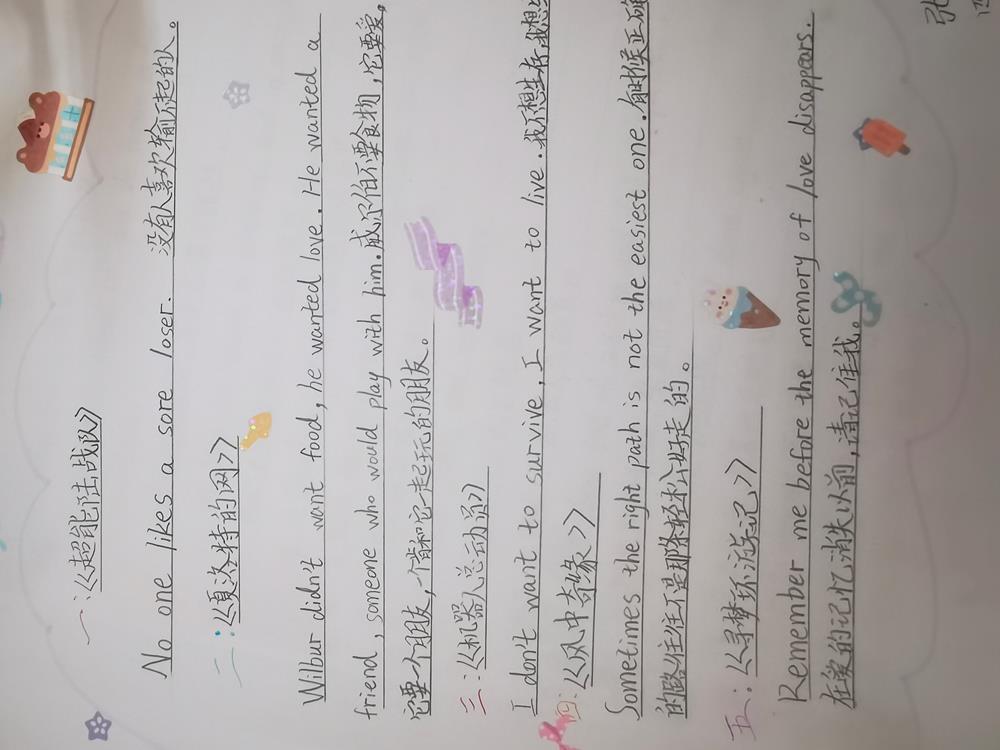 一:《超能陆战队》
No one likes a sore loser. 没有人喜欢输不起的人。
二:《夏洛特的网》
Wilbur didn't want food, he wanted love. He wanted a
friend, someone who would play with him. 威尔伯不要食物,它要爱。
它要个朋友,一个能和它一起玩的朋友。
三:《机器人总动员》
I don't want to survive, I want to live. 我不想生存,我想生
四:《风中奇缘》
Sometimes the right path is not the easiest one. 有时候正确
的路往往不是那条轻松好走的。
五:《寻梦环游记》
Remember me before the memory of love disappears.
在爱的记忆消失以前,请记住我。
张